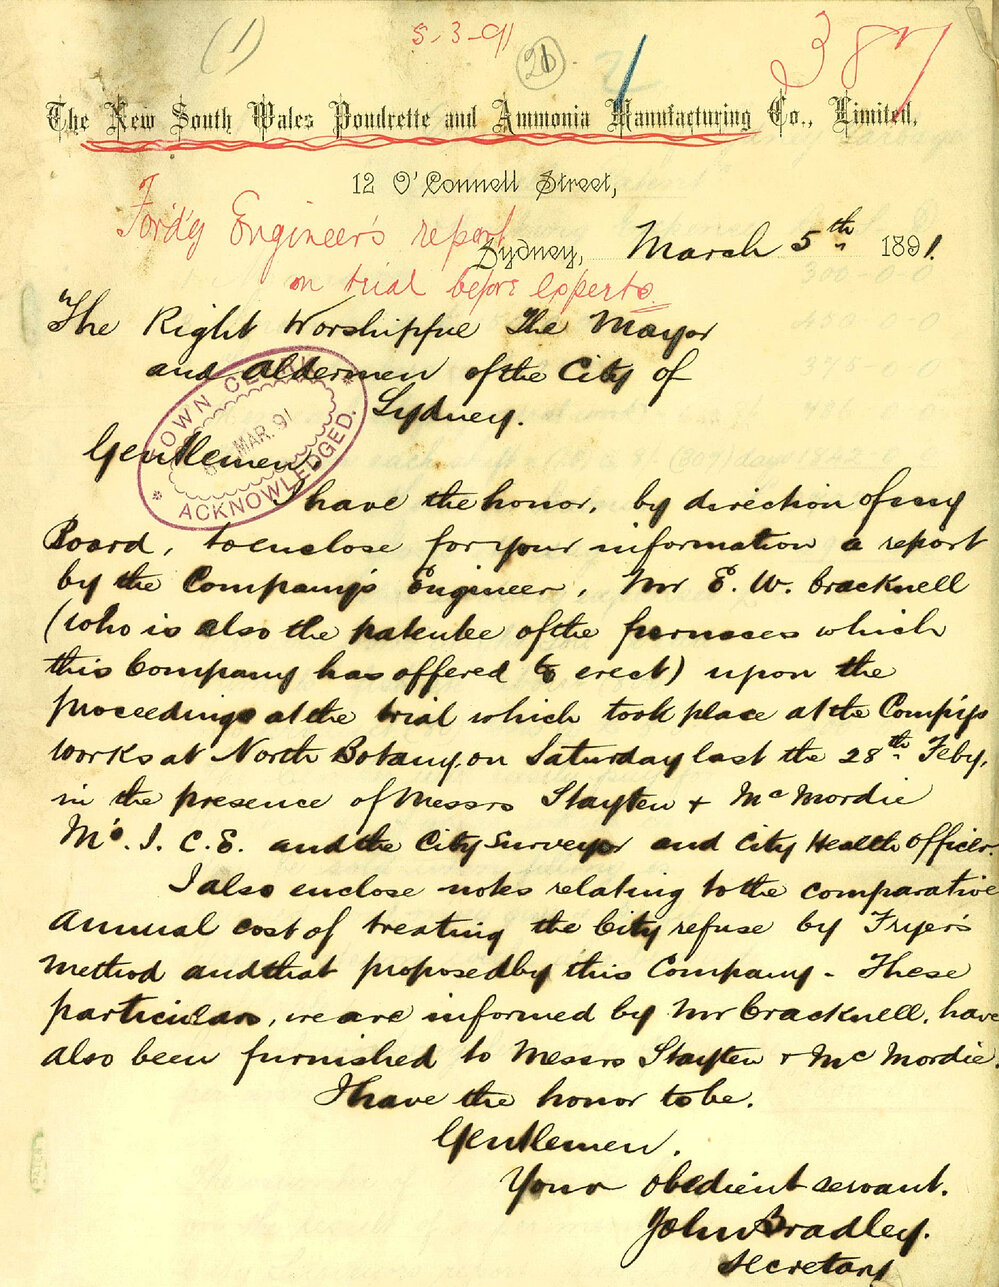 (1)
5-3-91
387
The New South Wales Poudrette and Ammonia Manufacturing Co., Limited.
12 O'Connell Street,
Ford'g Engineer's report
Sydney, March 5th 1891.
on trial before experts
The Right Worshipful The Mayor
and Aldermen of the City of
Sydney.
TOWN CLERK
MAR. 91
ACKNOWLEDGED.
Gentlemen,
I have the honor, by direction of my
Board, to enclose for your information a report
by the Company's Engineer, Mr E. W. Cracknell
(who is also the patentee of the furnaces which
this Company has offered to erect) upon the
proceedings at the trial which took place at the Comp'ys
works at North Botany, on Saturday last the 28th Feby,
in the presence of Messrs Stayton & McMordie
M's. I. C. E. and the City Surveyor and City Health Officer.
I also enclose notes relating to the comparative
Annual cost of treating the City refuse by Fryer's
method and that proposed by this Company - These
particulars, we are informed by Mr Cracknell, have
also been furnished to Messrs Stayton & McMordie.
I have the honor to be.
Gentlemen.
Your obedient servant.
John Bradley.
Secretary